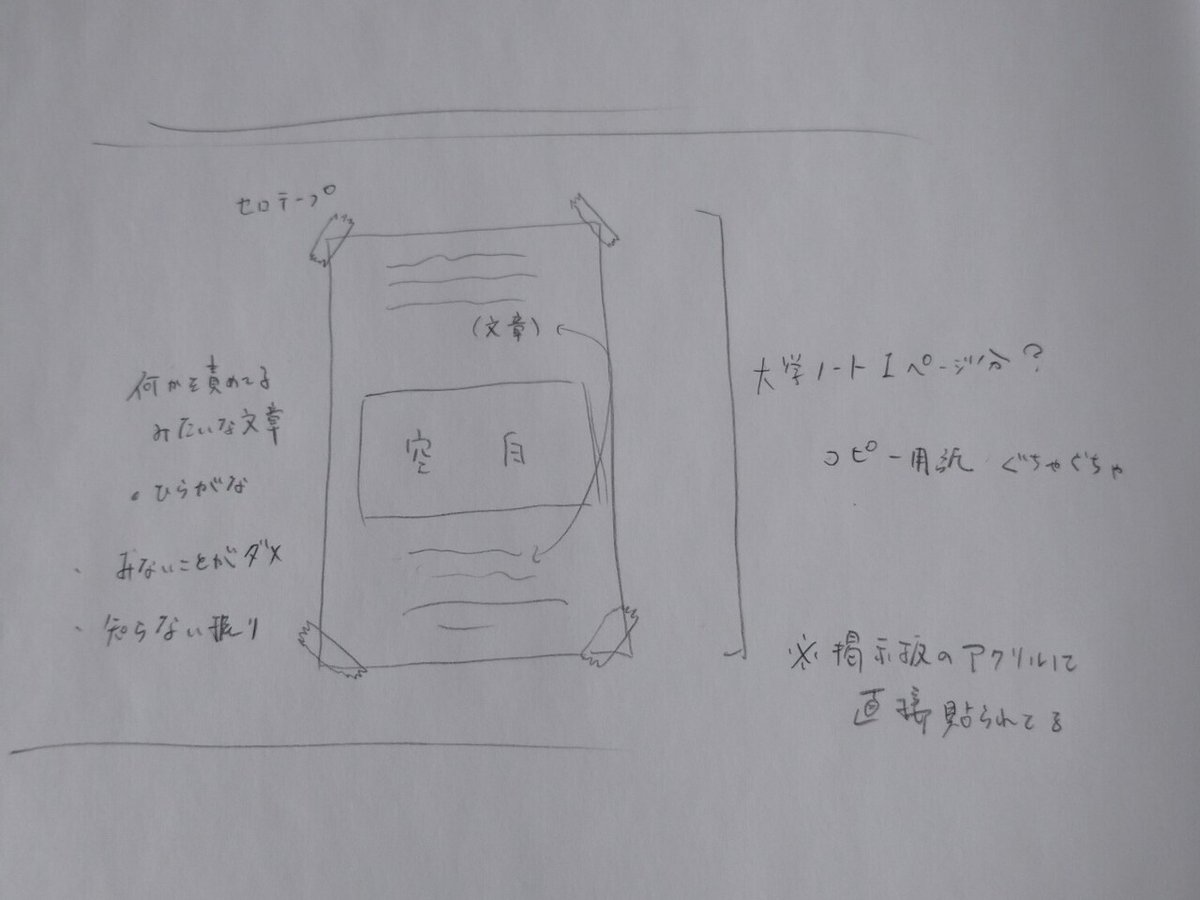 セロテープ
(文章)
何かを責めてる
みたいな文章
・ひらがな
・みないことがダメ
・知らない振り
空白
大学ノート1ページ分?
コピー用紙 ぐちゃぐちゃ
※掲示板のアクリルに
直接貼られてる